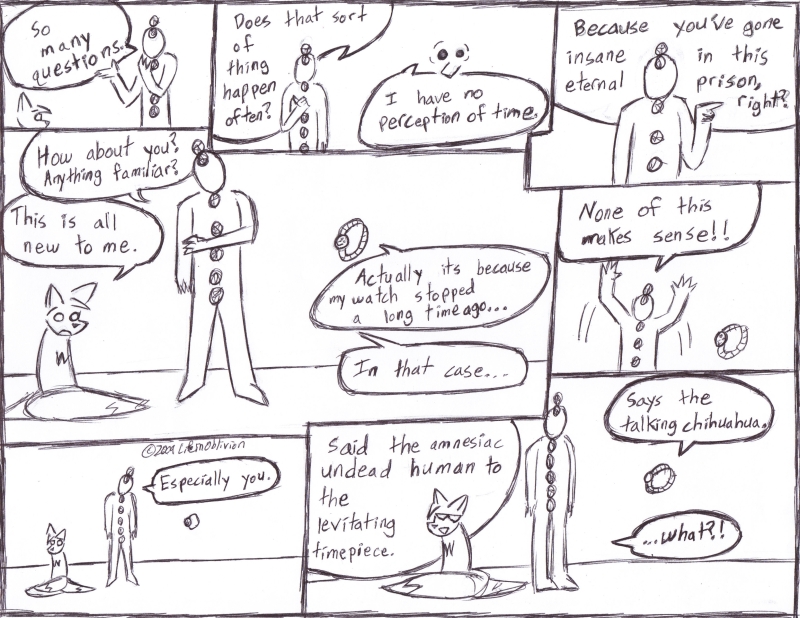 So
many
questions.
Does that sort
of
thing
happen
often?
I have no
perception of time.
Because you've gone
insane in this
eternal prison,
right?
How about you?
Anything familiar?
This is all
new to me.
Actually its because
my watch stopped
a long time ago...
In that case...
None of this
makes sense!!
©2009 LifesnOblivion
Especially you.
Said the amnesiac
undead human to
the
levitating
timepiece.
Says the
talking chihuahua.
...what?!
W
W
W